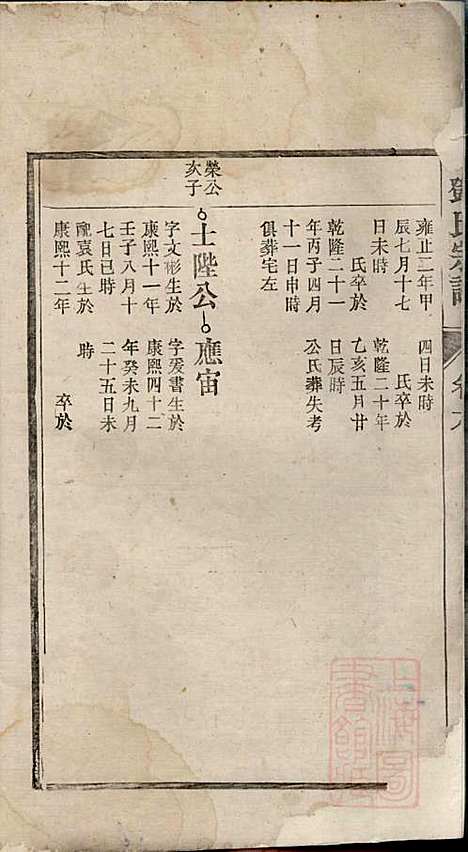 鄧氏宗譜
卷六
雍正二年甲
辰七月十七
日未時
氏卒於
乾隆二十一
年丙子四月
十一日申時
俱葬宅左
四日未時
氏卒於
乾隆二十年
乙亥五月廿
日辰時
公氏葬失考
榮公
次子
士陛公
應宙
字文彬生於
康熙十一年
壬子八月十
七日巳時
配袁氏生於
康熙十二年
字爰書生於
康熙四十二
年癸未九月
二十五日未
時
卒於
上海圖
書館藏